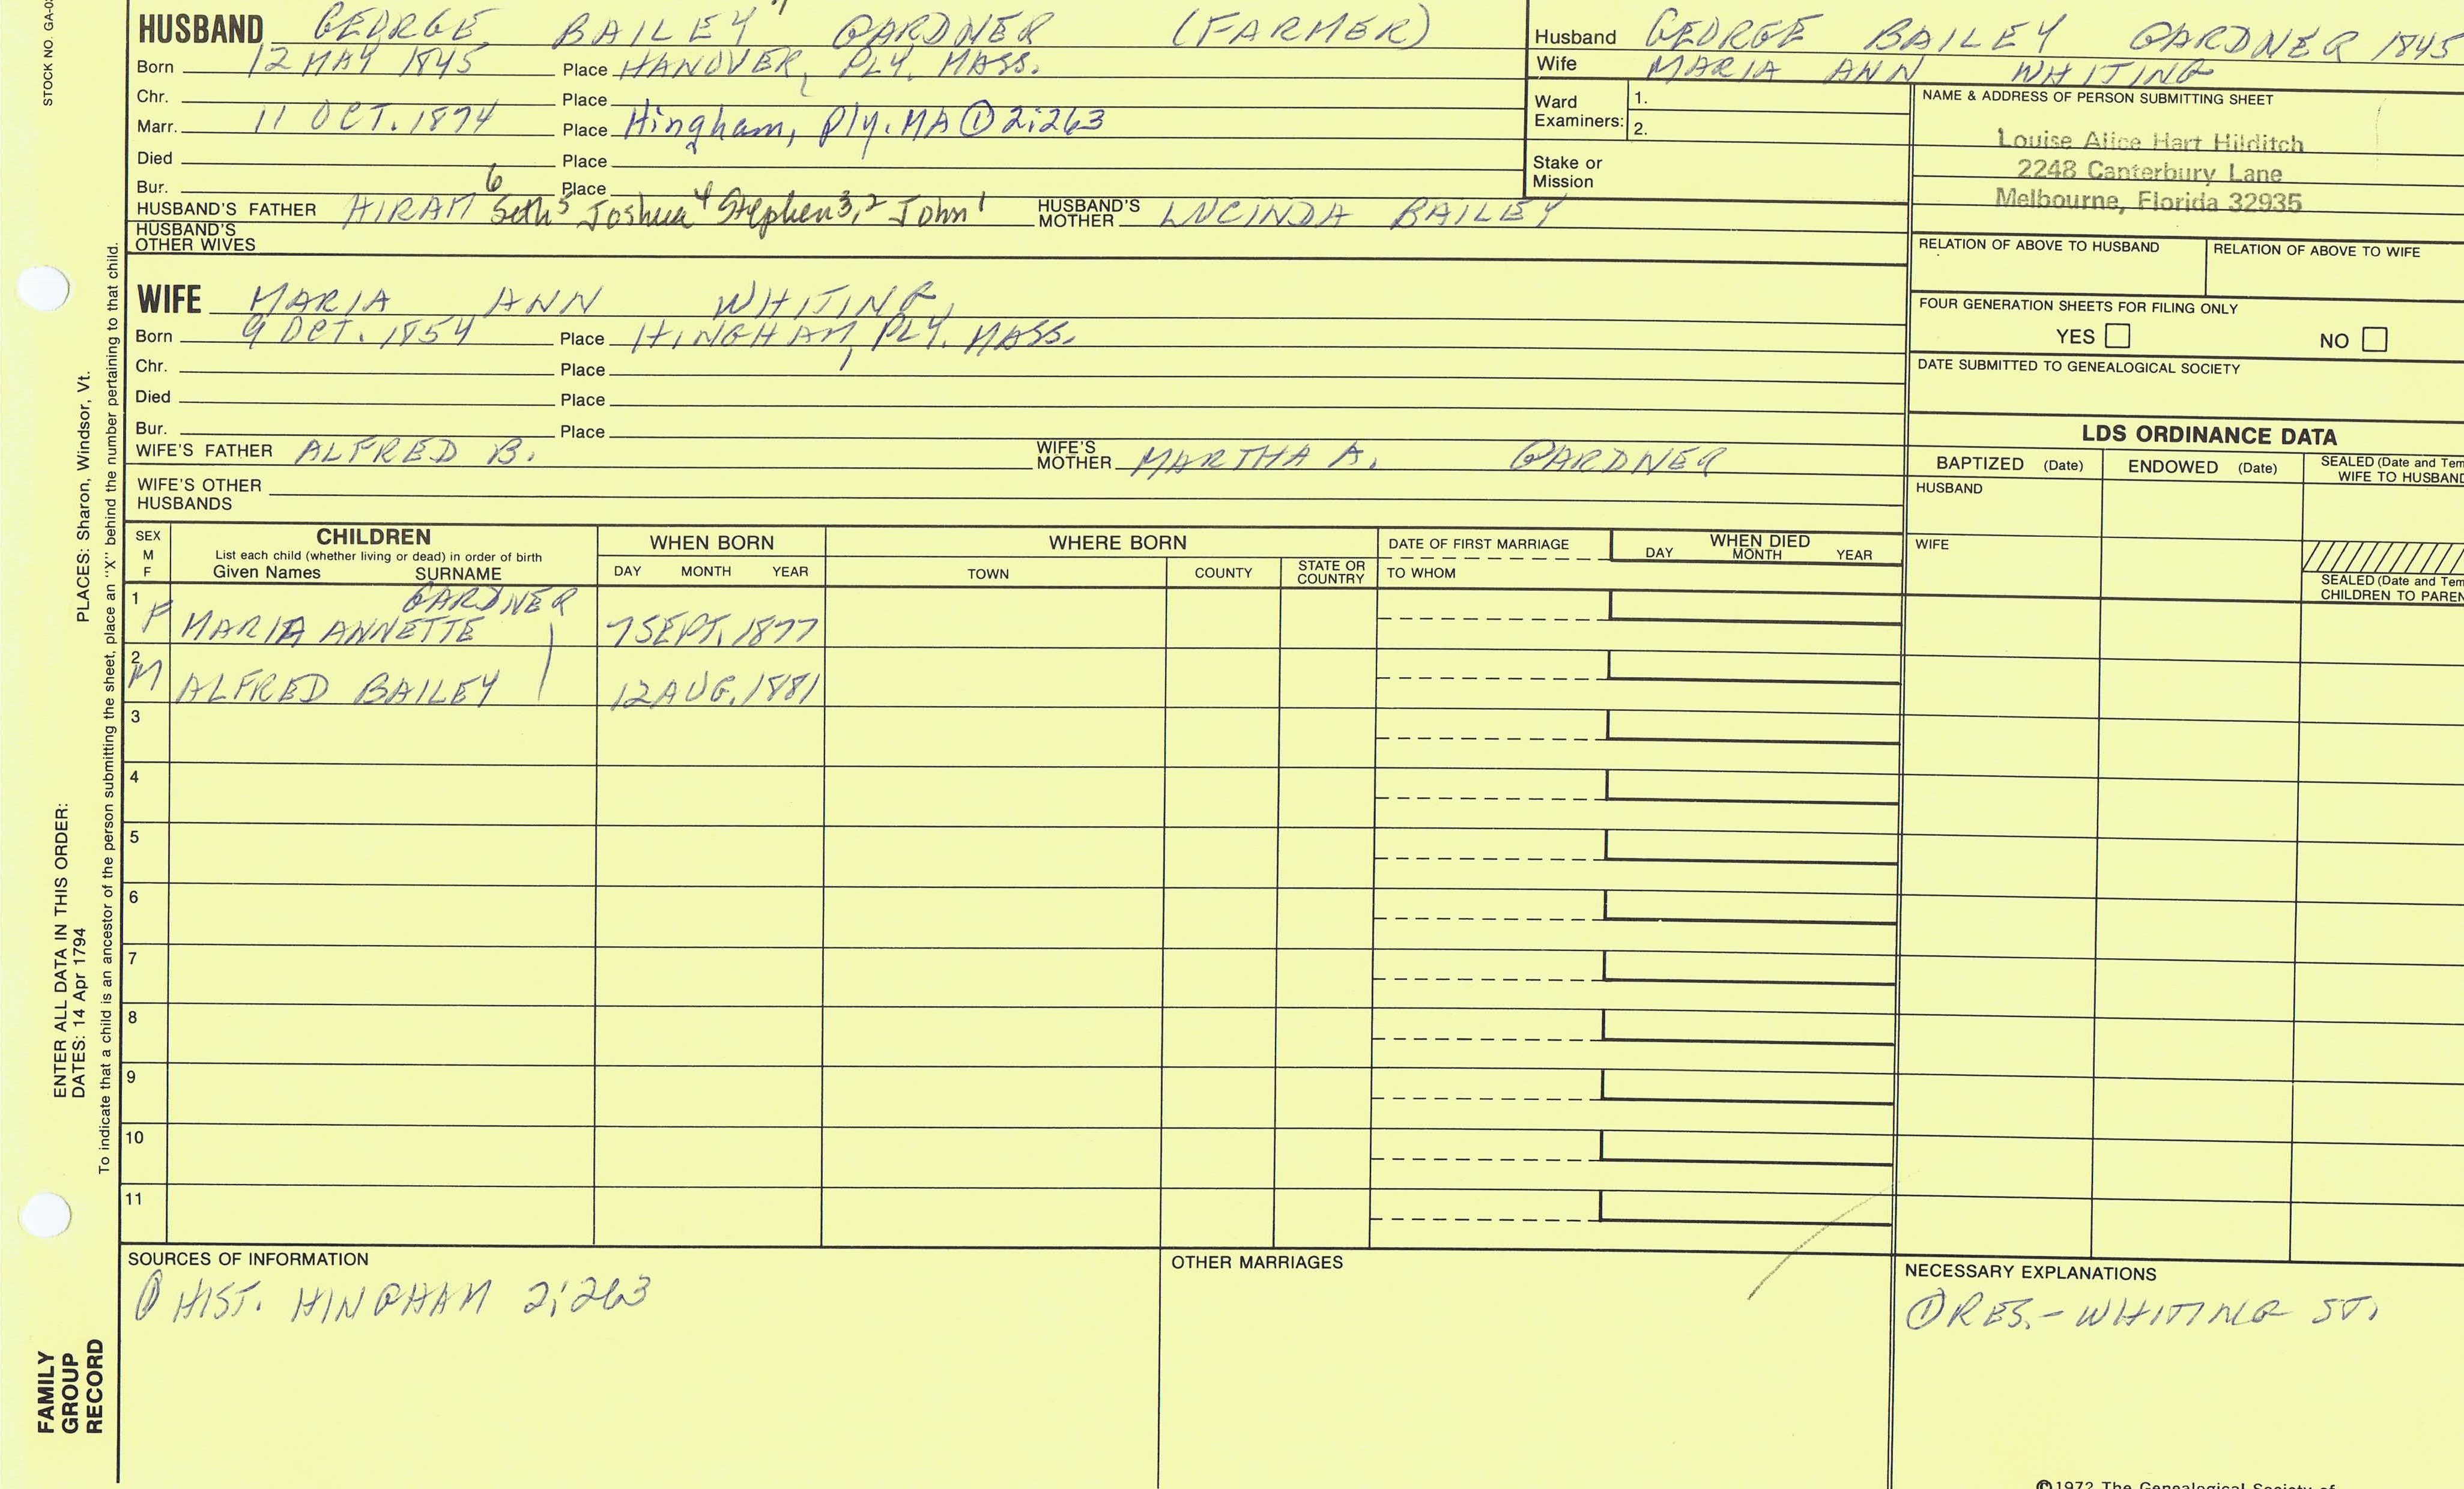 STOCK NO. GA-0
HUSBAND GEORGE BAILEY GARDNER (FARMER)
Born 12 MAY 1845 Place HANOVER, PLY. MASS.
Chr. Place
Marr. 11 OCT. 1874 Place Hingham, Ply. MA ① 2:263
Died Place
Bur. Place
HUSBAND'S FATHER HIRAM 6 Seth 5 Joshua 4 Stephen 3,2 John 1 HUSBAND'S MOTHER LUCINDA BAILEY
HUSBAND'S OTHER WIVES
WIFE MARIA ANN WHITING
Born 9 OCT. 1854 Place HINGHAM, PLY. MASS.
Chr. Place
Died Place
Bur. Place
WIFE'S FATHER ALFRED B. WIFE'S MOTHER MARTHA A. GARDNER
WIFE'S OTHER HUSBANDS
Husband GEORGE BAILEY GARDNER 1845
Wife MARIA ANN WHITING
Ward Examiners: 1.
2.
Stake or Mission
NAME & ADDRESS OF PERSON SUBMITTING SHEET
Louise Alice Hart Hilditch
2248 Canterbury Lane
Melbourne, Florida 32935
RELATION OF ABOVE TO HUSBAND RELATION OF ABOVE TO WIFE
FOUR GENERATION SHEETS FOR FILING ONLY
YES NO
DATE SUBMITTED TO GENEALOGICAL SOCIETY
LDS ORDINANCE DATA
BAPTIZED (Date) ENDOWED (Date) SEALED (Date and Tem
WIFE TO HUSBAND
HUSBAND
WIFE
SEALED (Date and Tem
CHILDREN TO PAREN
SEX
M
F
CHILDREN
List each child (whether living or dead) in order of birth
Given Names SURNAME
WHEN BORN
DAY MONTH YEAR
WHERE BORN
TOWN COUNTY STATE OR COUNTRY
DATE OF FIRST MARRIAGE
TO WHOM
WHEN DIED
DAY MONTH YEAR
1 GARDNER
F MARIA ANNETTE 7 SEPT. 1877
2
M ALFRED BAILEY 12 AUG. 1881
3
4
5
6
7
8
9
10
11
SOURCES OF INFORMATION
① HIST. HINGHAM 2:263
OTHER MARRIAGES
NECESSARY EXPLANATIONS
① RES. - WHITING ST.
PLACES: Sharon, Windsor, Vt.
To indicate that a child is an ancestor of the person submitting the sheet, place an "X" behind the number pertaining to that child.
ENTER ALL DATA IN THIS ORDER:
DATES: 14 Apr 1794
FAMILY
GROUP
RECORD
©1972 The Genealogical Society of